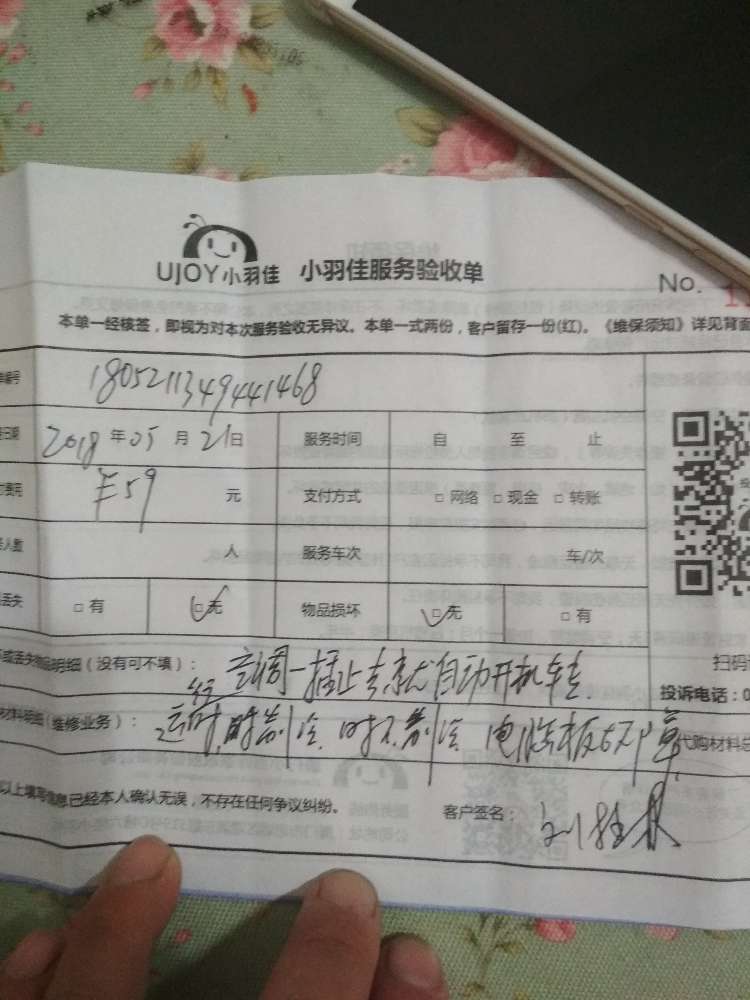 UJOY小羽佳 小羽佳服务验收单
No. 1
本单一经核签，即视为对本次服务验收无异议。本单一式两份，客户留存一份(红)。《维保须知》详见背面
编号 1805211349441468
日期 2018 年 05 月 21 日 服务时间 自 至 止
费用 ¥59 元 支付方式 □ 网络 □ 现金 □ 转账
人数 人 服务车次 车/次
丢失 □ 有 □ 无 物品损坏 □ 无 □ 有
明细（没有可不填）： 空调一插上去就自动开机
扫码
投诉电话：0
材料明细（维修业务）： 时制冷 时不制冷 电脑板 障
代购材料总
以上填写信息已经本人确认无误，不存在任何争议纠纷。 客户签名： 刘